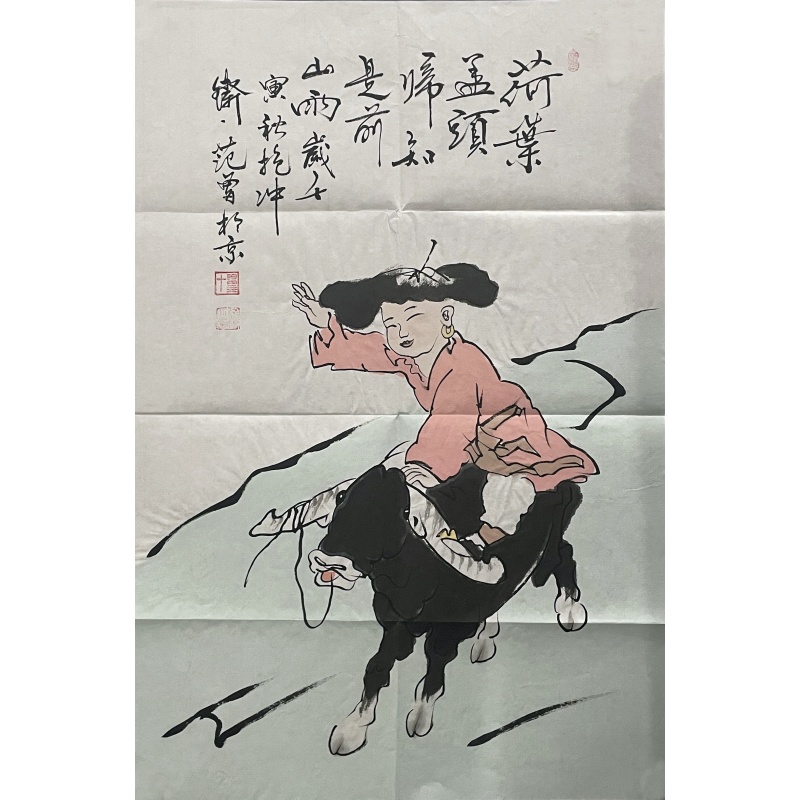 荷葉
盖頭
帰知
是前
山雨歲壬
寅秋抱冲
齋·范曾於京